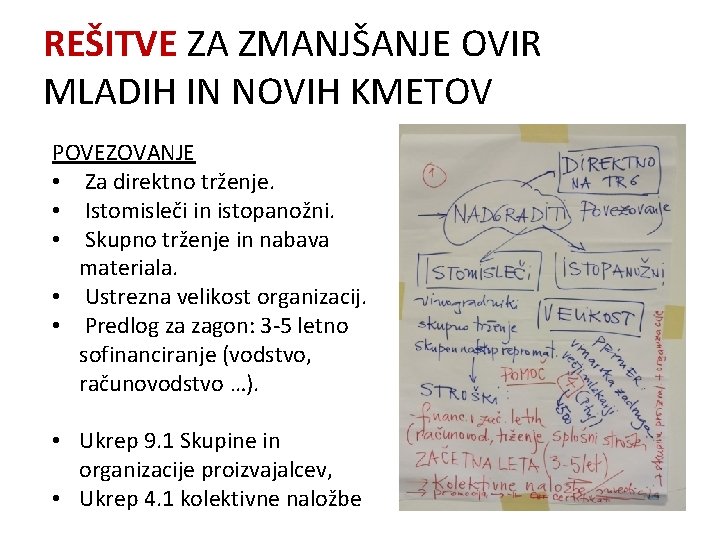 REŠITVE ZA ZMANJŠANJE OVIR
MLADIH IN NOVIH KMETOV
POVEZOVANJE
• Za direktno trženje.
• Istomisleči in istopanožni.
• Skupno trženje in nabava
materiala.
• Ustrezna velikost organizacij.
• Predlog za zagon: 3-5 letno
sofinanciranje (vodstvo,
računovodstvo …).
• Ukrep 9. 1 Skupine in
organizacije proizvajalcev,
• Ukrep 4. 1 kolektivne naložbe
1
DIREKTNO
NA TRG
NADGRADITI Povezovanje
ISTOMISLEČI
ISTOPANOŽNI
vinogradniki
skupno trženje
VELIKOST
PRIMER:
vmarvka zadruga
večji mlekarji
POMOČ
STROŠKI
500
financ. v zač. letih
(računovod, trženje, splošni stroški
ZAČETNA LETA (3-5 let)
Kolektivne naložbe
→ promocija
→ skupine proizvaj. + organizacije